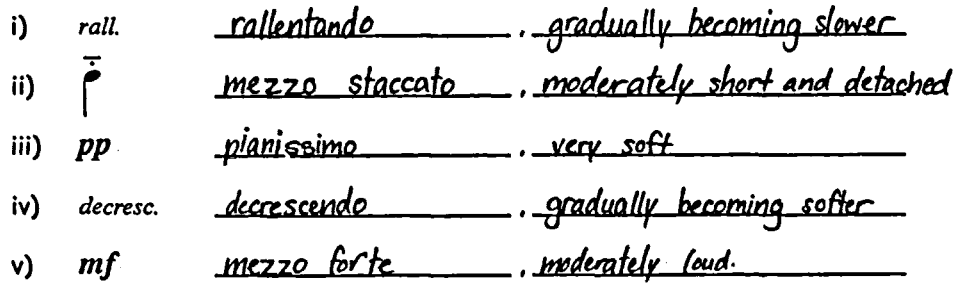 i) rall. rallentando . gradually becoming slower
ii) mezzo staccato . moderately short and detached
iii) pp pianissimo . very soft
iv) decresc. decrescendo . gradually becoming softer
v) mf mezzo forte . moderately loud.